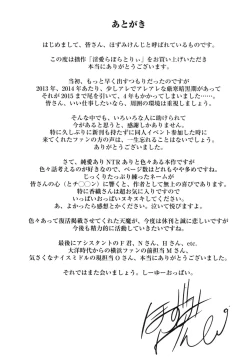 あとがき
はじめまして、皆さん、ほずみけんじと呼ばれているものです。
この度は拙作「淫愛らぼらとりぃ」をお買い上げいただき
本当にありがとうございます。
当初、もっと早く出すつもりだったのですが
2013年、2014年あたり、少しアレでアレアレな暗黒暗黒期があって
それが2015まで尾を引いて、4年もかかってしまいました……。
皆さん、いい仕事したいなら、周囲の環境は重視しましょう。
そんな中でも、いろいろな人に助けられて
今があると思うと、感謝しかありません。
特に久しぶりに新刊も持たずに同人イベント参加した時に
来てくれたファンの方の声は、一生忘れることはないでしょう。
ありがとうございました。
さて、純愛ありNTRありと色々ある本作ですが
色々話考えるのが好きなので、ページ数はどれもやや多めですね。
じっくりたっぷり練ったネームが
皆さんの心（とチ〇〇ン）に響くと、作者として無上の喜びであります。
特に香織さんは超お気に入りですので
いっぱいおっぱいヌキヌキしてください。
あ、よかったら感想とかください。泣いて悦びますよ。
色々あって復活掲載させてくれた天魔が、今度は休刊と誠に悲しいですが
今後も精力的に活動していきたいですね。
最後にアシスタントのF君、Nさん、Hさん、etc.
大洋時代からの横浜ファンの前担当Mさん、
気さくなナイスミドルの現担当Oさん、本当にありがとうございました。
それではまた会いましょう。しーゆーおっぱい。
ほずみけんじ